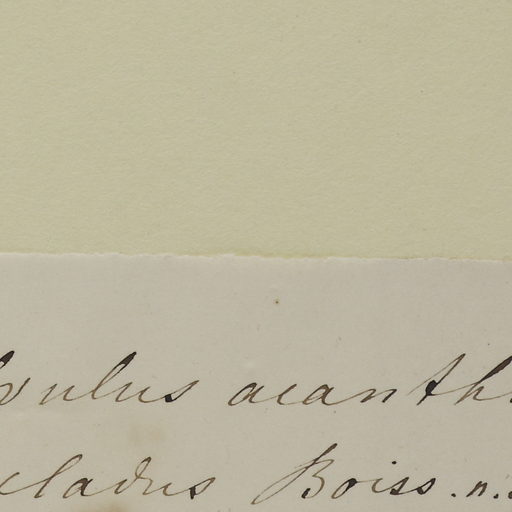 lvulus acanth
cladus Boiss. n.